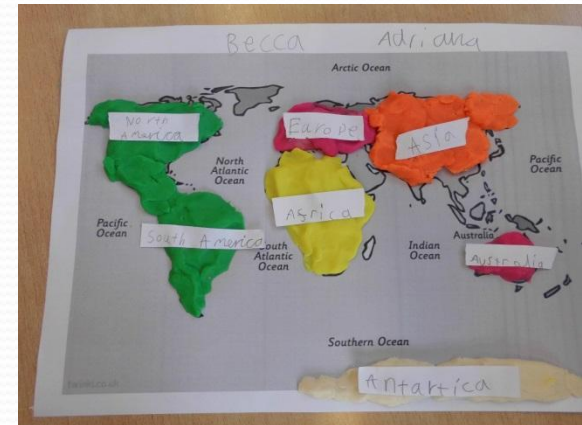 Becca Adriana
Arctic Ocean
North
America
Europe
Asia
North
Atlantic
Ocean
Pacific
Ocean
Africa
Pacific
Ocean
South America
South
Atlantic
Ocean
Indian
Ocean
Australia
Australia
Southern Ocean
Antartica